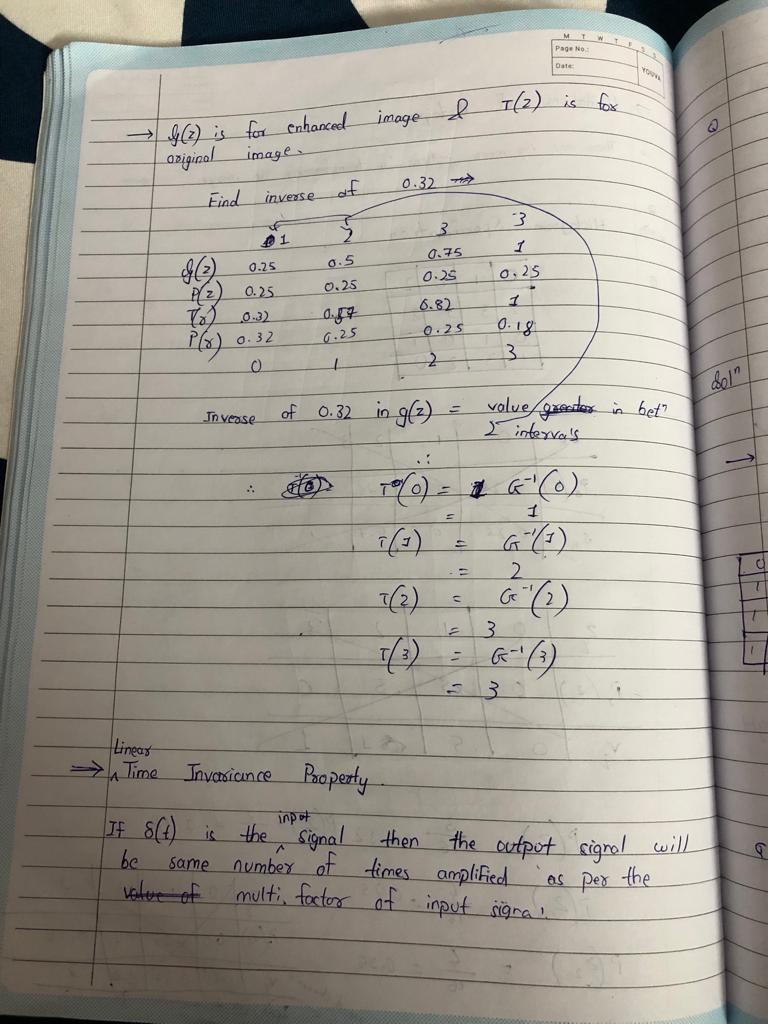 M T W T F S S
Page No.:
Date:
YOUVA
→ G(z) is for enhanced image & T(z) is for
original image.
Find inverse of 0.32 →
1 2 3 3
G(z) 0.25 0.5 0.75 1
P(z) 0.25 0.25 0.25 0.25
T(r) 0.32 0.57 0.82 1
P(r) 0.32 0.25 0.25 0.18
0 1 2 3
Inverse of 0.32 in g(z) = value greater in betn
2 intervals
∴
∴ T(0) = G⁻¹(0)
= 1
T(1) = G⁻¹(1)
= 2
T(2) = G⁻¹(2)
= 3
T(3) = G⁻¹(3)
= 3
Linear
⇒ ^ Time Invariance Property.
If δ(t) is the ^input signal then the output signal will
be same number of times amplified as per the
value of multi. factor of input signal.
Q
Solⁿ
→